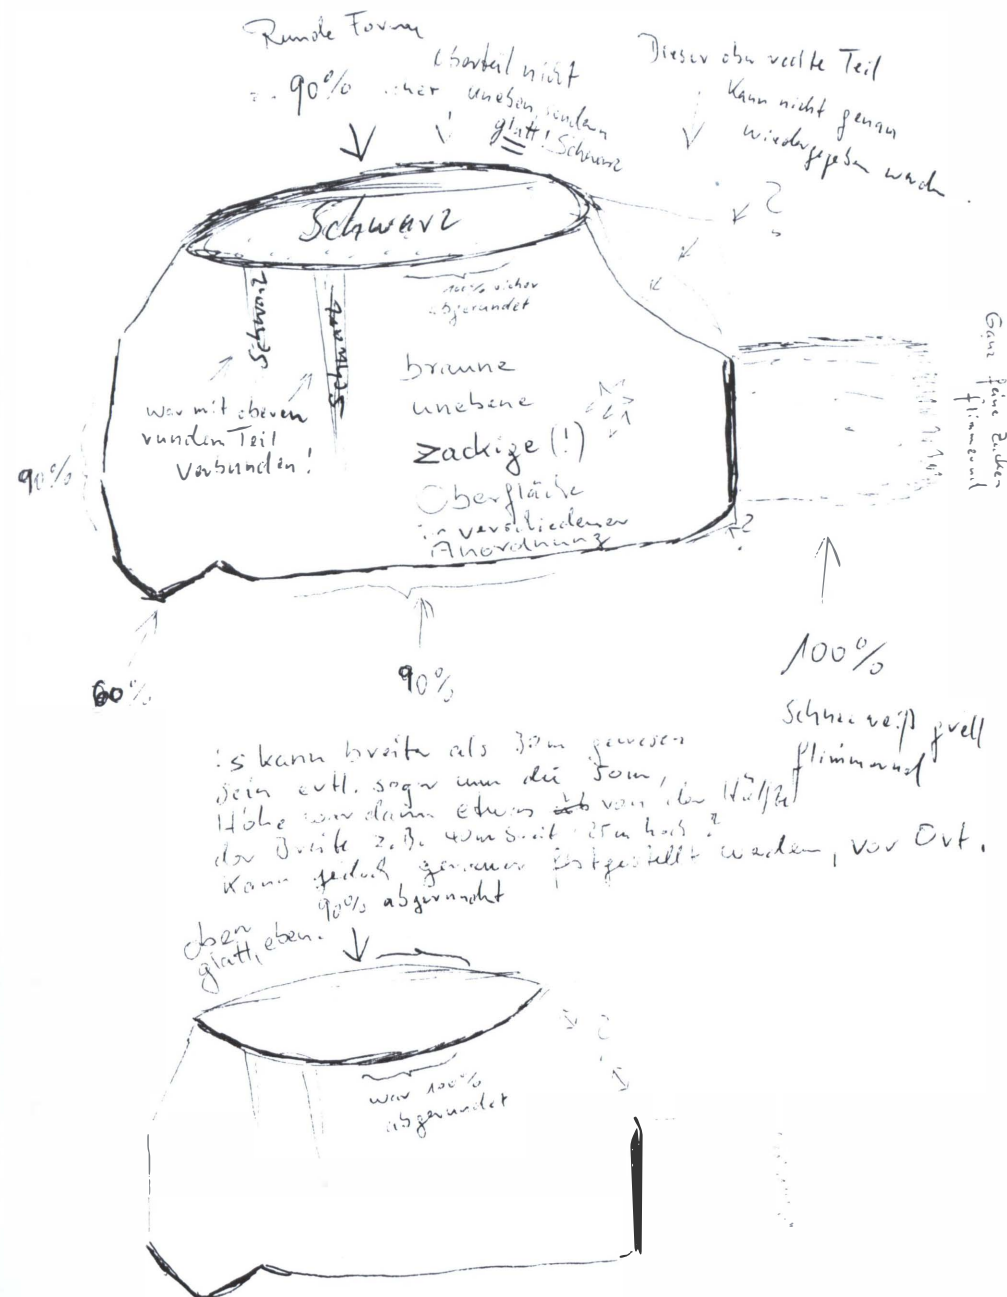 Runde Form
90% sicher
Oberteil nicht
uneben, sondern
glatt! Schwarz
Dieser obere rechte Teil
Kann nicht genau
wiedergegeben werden.
?
Schwarz
100% sicher
abgerundet
Schwarz
Schwarz
war mit oberen
runden Teil
Verbunden!
braune
unebene
zackige (!)
Oberfläche
in verschiedener
Anordnung
90%
Ganz feine Zacken
flimmernd
?
60%
90%
100%
Schneeweiß grell
flimmernd
Es kann breiter als 30m gewesen
sein evtl. sogar um die 50m,
Höhe war dann etwas von der Hälfte
der Breite z.B. 40m breit 25m hoch?
Kann jedoch genauer festgestellt werden, vor Ort.
90% abgerundet
oben
glatt, eben.
?
war 100%
abgerundet